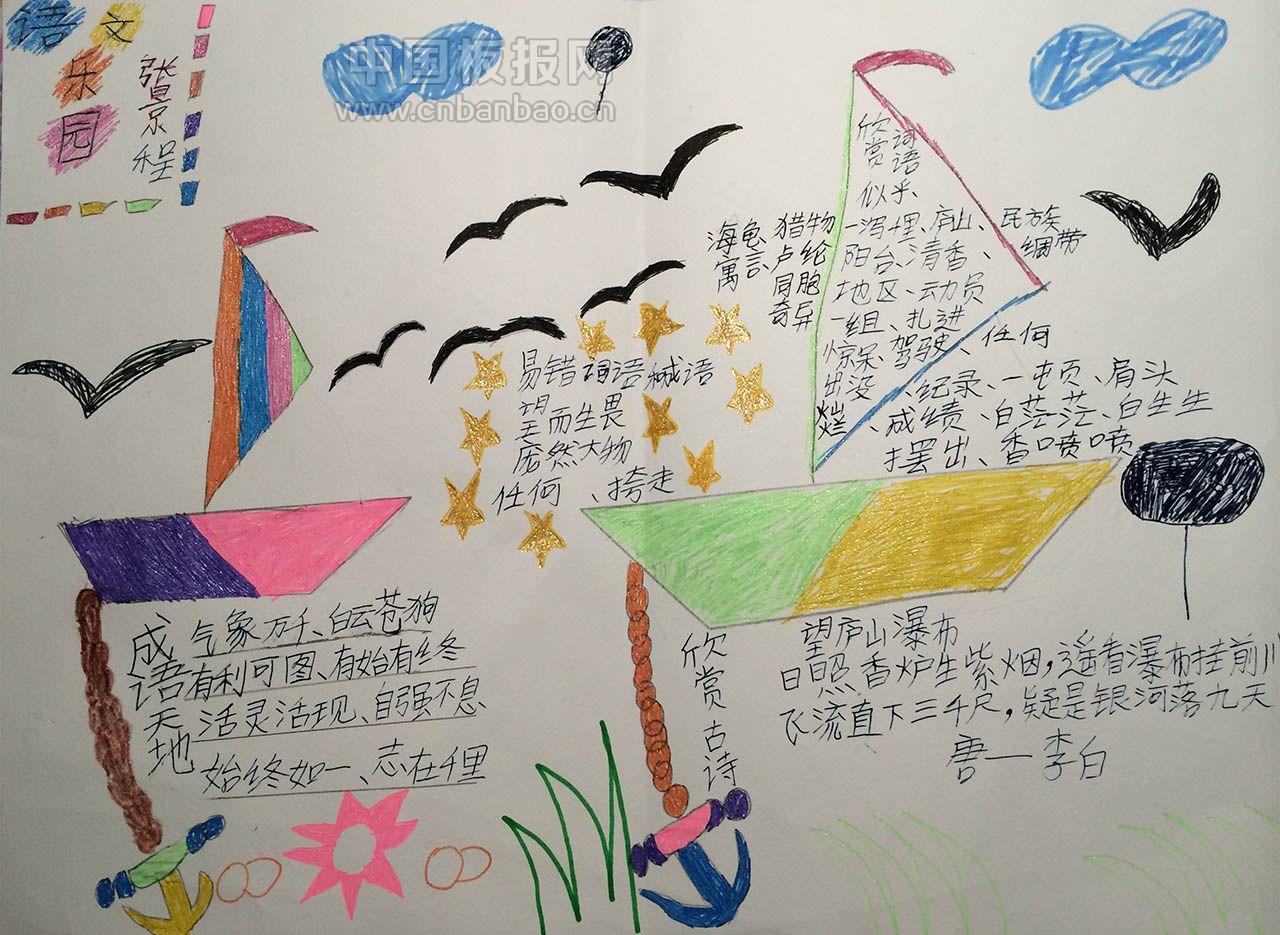 语文
乐
园
张京程
中国板报网
www.cnbanbao.cn
欣赏词语
似乎
海龟 猎物 一泻 埋、庐山、民族
寓言、卢纶 阳台、清香、绸带
同胞 地区、动员
奇异 一组、扎进
惊呆、驾驶、任何
出没、纪录、一顿、肩头
灿烂、成绩、白茫茫、白生生
摆出、香喷喷
易错词语 成语
望而生畏
庞然大物
任何、挎走
成语天地
气象万千、白云苍狗
有利可图、有始有终
活灵活现、自强不息
始终如一、志在千里
欣赏古诗
望庐山瀑布
日照香炉生紫烟，遥看瀑布挂前川
飞流直下三千尺，疑是银河落九天
唐一李白